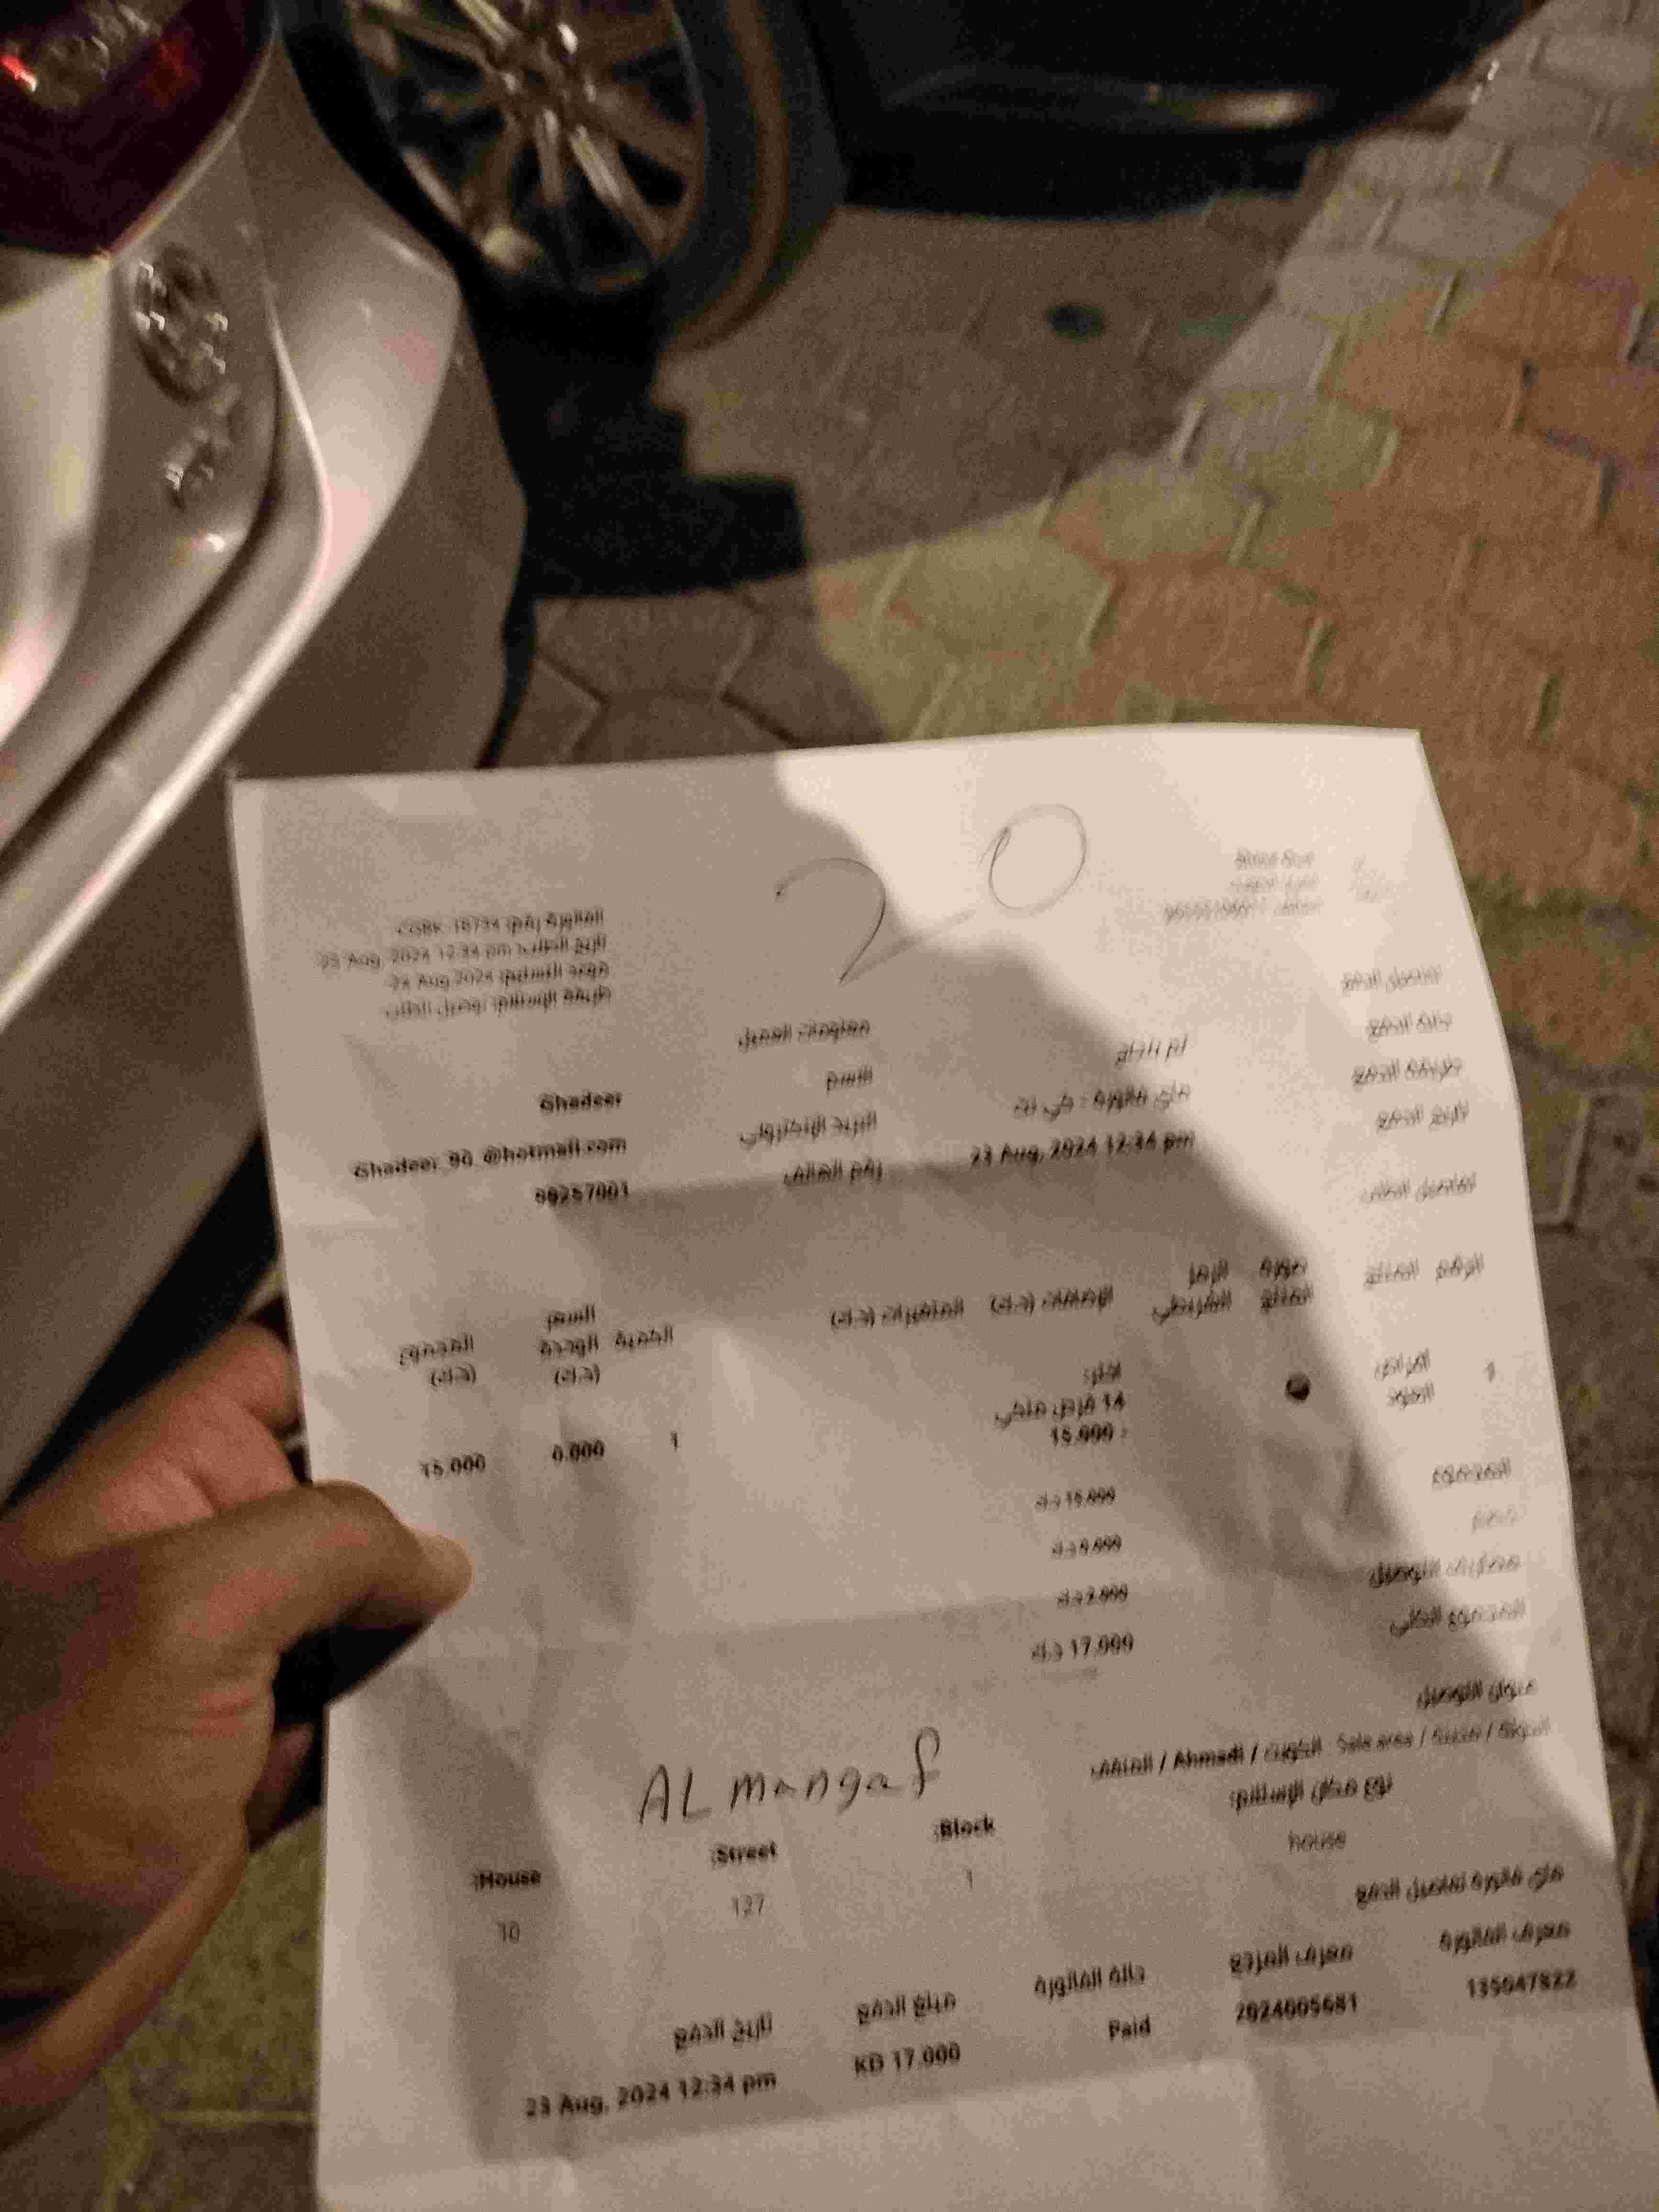 20
الفاتورة رقم: CGBK-18734
تاريخ الطلب: 23 Aug, 2024 12:34 pm
موعد التسليم: 24 Aug 2024
طريقة الإستلام: توصيل الطلب
تفاصيل الدفع
معلومات العميل
حالة الدفع
تم الدفع
الاسم
Ghadeer
طريقة الدفع
ماي فاتورة - كي نت
البريد الإلكتروني
Ghadeer_90_@hotmail.com
تاريخ الدفع
23 Aug, 2024 12:34 pm
رقم الهاتف
تفاصيل الطلب
الرقم المنتج صورة المنتج الرمز المرجعي الإضافات (د.ك) المتغيرات (د.ك) الكمية السعر الوحدة (د.ك) المجموع (د.ك)
1
14
15.000
1 0.000 15.000
المجموع
15.000 د.ك
خصم
0.000 د.ك
مصاريف التوصيل
2.000 د.ك
المجموع الكلي
17.000 د.ك
عنوان التوصيل
AL mangaf
/ Ahmadi / الكويت
نوع مكان الإستلام:
house
Block: Street: House:
1 127 10
ماي فاتورة تفاصيل الدفع
معرف الفاتورة معرف المرجع حالة الفاتورة مبلغ الدفع تاريخ الدفع
135047822 2024005681 Paid KD 17.000 23 Aug, 2024 12:34 pm